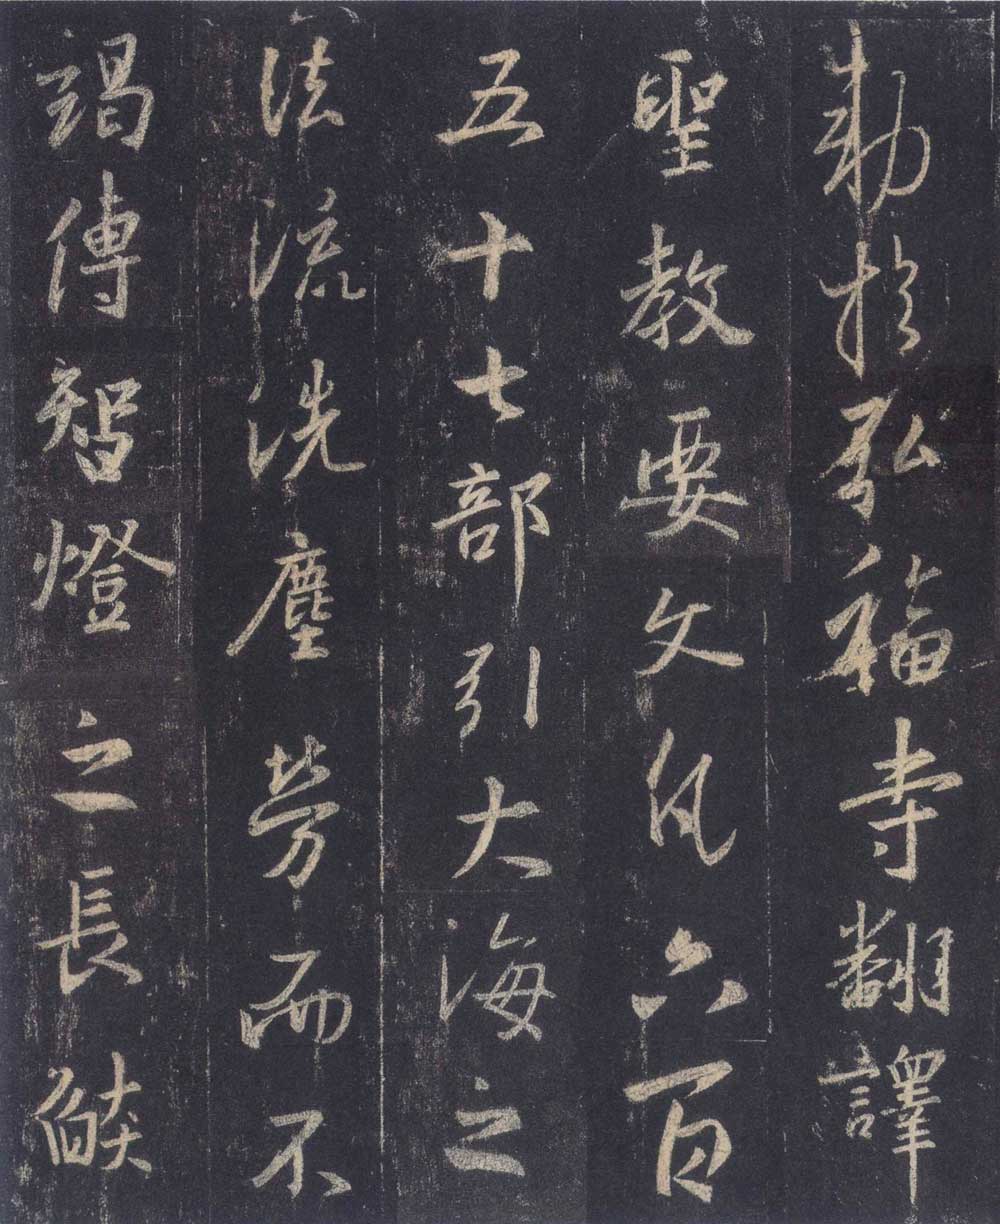 勅於弘福寺翻譯
聖教要文凡六百
五十七部引大海之
法流洗塵勞而不
竭傳智燈之長焰